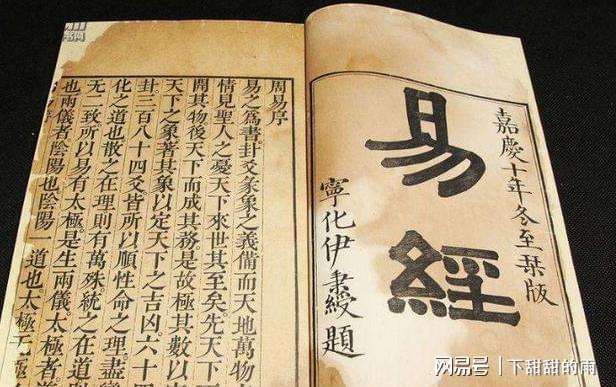 嘉慶十年冬至栞版
易經
寧化伊秉綬題
周易序
易之爲書卦爻彖象之義備而天地萬物
情見聖人之憂天下來世其至矣先天下
開其物後天下而成其務是故極其數以
天下之象著其象以定天下之吉凶六十四
卦三百八十四爻皆所以順性命之理盡
化之道也散之在理則有萬殊統之在道則
无一致所以易有太極是生兩儀太極
也兩儀者陰陽也陰陽一道也太極无極
网易号 | 下甜甜的雨